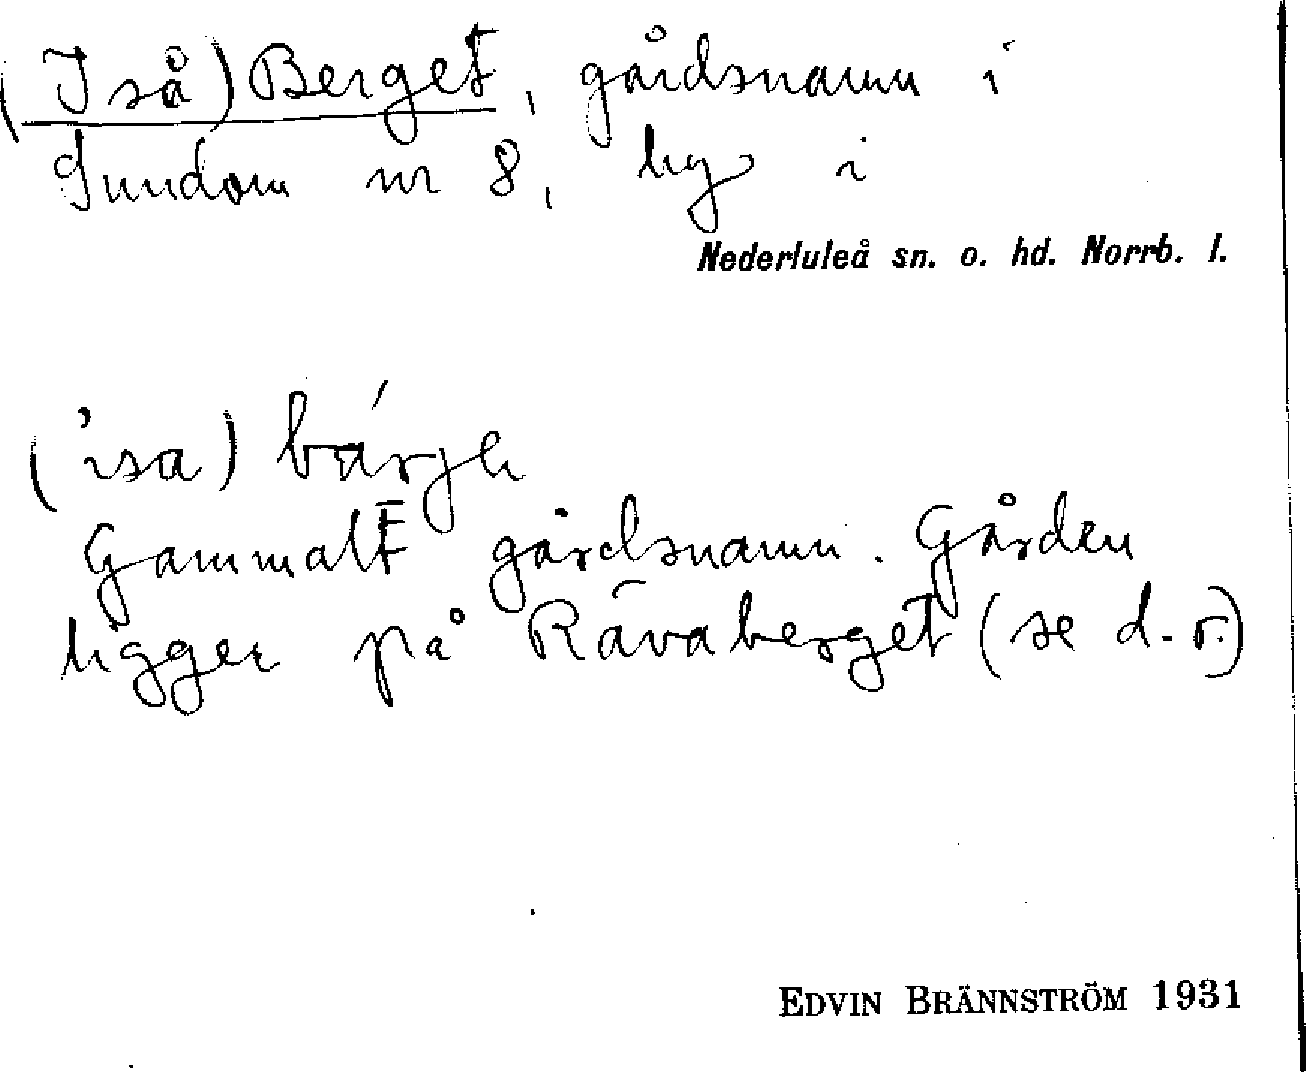 (I så) Berget, gårdsnamn i
Sundom nr 8, by i
Nederluleå sn. o. hd. Norrb. l.
(ˈisa) bárje
Gammalt gårdsnamn. Gården
ligger på Rävaberget (se d. o.)
EDVIN BRÄNNSTRÖM 1931